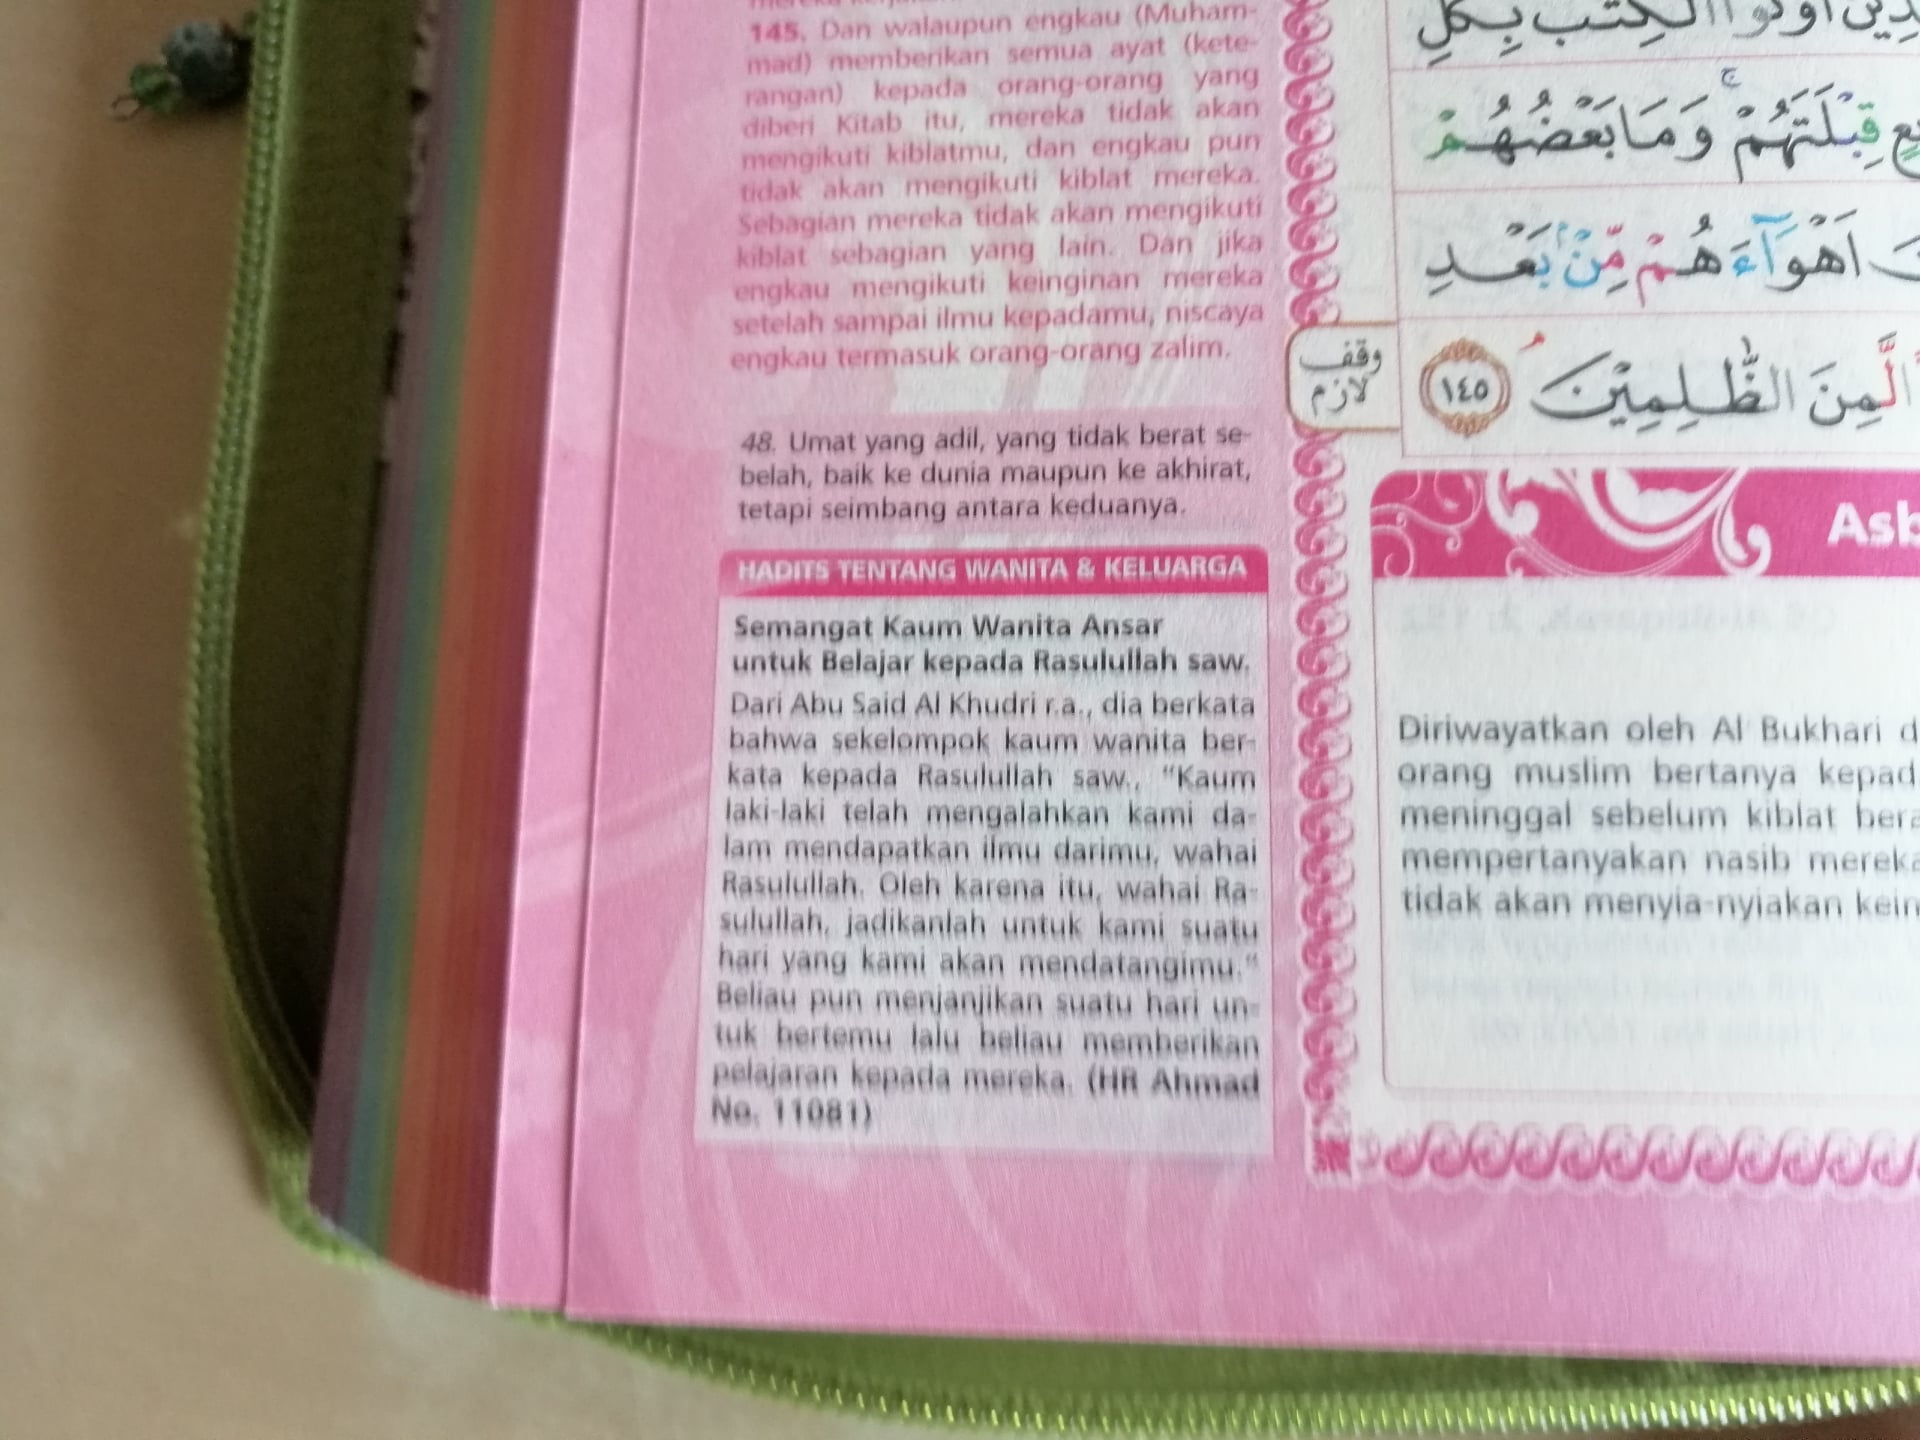 145. Dan walaupun engkau (Muham-
mad) memberikan semua ayat (kete-
rangan) kepada orang-orang yang
diberi Kitab itu, mereka tidak akan
mengikuti kiblatmu, dan engkau pun
tidak akan mengikuti kiblat mereka.
Sebagian mereka tidak akan mengikuti
kiblat sebagian yang lain. Dan jika
engkau mengikuti keinginan mereka
setelah sampai ilmu kepadamu, niscaya
engkau termasuk orang-orang zalim.
48. Umat yang adil, yang tidak berat se-
belah, baik ke dunia maupun ke akhirat,
tetapi seimbang antara keduanya.
HADITS TENTANG WANITA & KELUARGA
Semangat Kaum Wanita Ansar
untuk Belajar kepada Rasulullah saw.
Dari Abu Said Al Khudri r.a., dia berkata
bahwa sekelompok kaum wanita ber-
kata kepada Rasulullah saw., "Kaum
laki-laki telah mengalahkan kami da-
lam mendapatkan ilmu darimu, wahai
Rasulullah. Oleh karena itu, wahai Ra-
sulullah, jadikanlah untuk kami suatu
hari yang kami akan mendatangimu."
Beliau pun menjanjikan suatu hari un-
tuk bertemu lalu beliau memberikan
pelajaran kepada mereka. (HR Ahmad
No. 11081)
الْكِتٰبَ بِكُلِّ
قِبْلَتَهُمْ ۚ وَمَا بَعْضُهُمْ
اَهْوَاۤءَهُمْ مِّنْۢ بَعْدِ
لَّمِنَ الظّٰلِمِيْنَ ۘ ١٤٥
وقف
لازم
Asb
Diriwayatkan oleh Al Bukhari d
orang muslim bertanya kepad
meninggal sebelum kiblat bera
mempertanyakan nasib mereka
tidak akan menyia-nyiakan keim